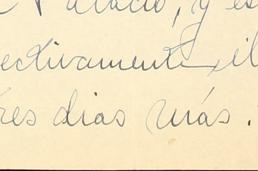 Palacio, y es
ectivamente, il
res dias más.